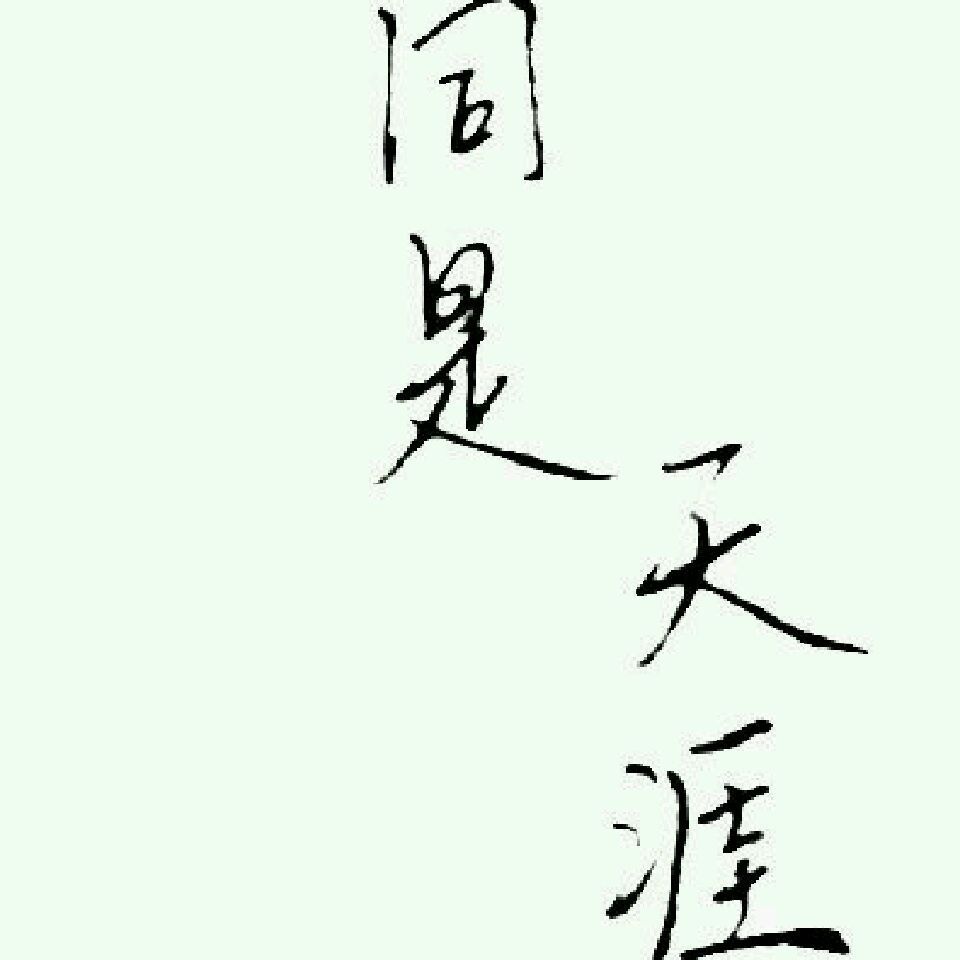 同是
天涯